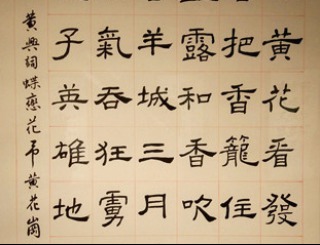 黄花看發
把香籠住
露和香吹
羊城三月
氣吞狂虜
子英雄地
黄興詞蝶戀花吊黄花崗